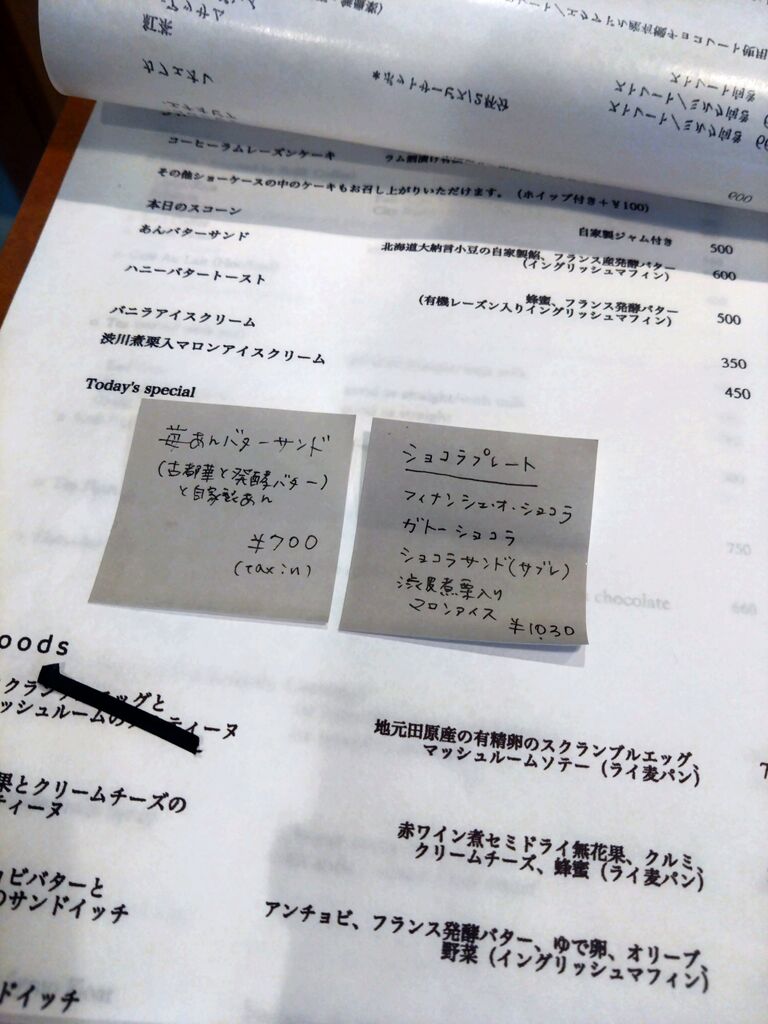 紅茶
カフェオレ
*ポットサービス/2杯分
コーヒーラムレーズンケーキ
ラム酒漬け
その他ショーケースの中のケーキもお召し上がりいただけます。（ホイップ付き＋￥100）
本日のスコーン 自家製ジャム付き 500
あんバターサンド 北海道大納言小豆の自家製餡、フランス産発酵バター
（イングリッシュマフィン） 600
ハニーバタートースト 蜂蜜、フランス発酵バター
（有機レーズン入りイングリッシュマフィン） 500
バニラアイスクリーム 350
渋川煮栗入マロンアイスクリーム 450
Today's special
苺あんバターサンド
(古都華と発酵バター)
と自家製あん
¥700
(tax in)
ショコラプレート
フィナンシェ・オ・ショコラ
ガトーショコラ
ショコラサンド(サブレ)
渋皮煮栗入り
マロンアイス ¥1030
oods
クラン エッグと
ッシュルームの ティーヌ
地元田原産の有精卵のスクランブルエッグ、
マッシュルームソテー（ライ麦パン）
果とクリームチーズの
ティーヌ
赤ワイン煮セミドライ無花果、クルミ、
クリームチーズ、蜂蜜（ライ麦パン）
ビバターと
のサンドイッチ
アンチョビ、フランス発酵バター、ゆで卵、オリーブ、
野菜（イングリッシュマフィン）
ドイッチ